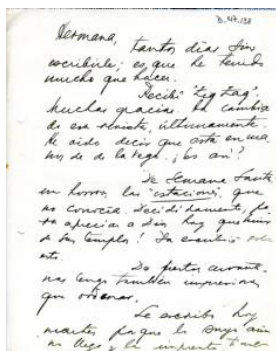 Hermana,
tantos días sin
escribirle; es que he tenido
mucho que hacer.
Recibí "Zig Zag",
muchas gracias. Ha cambia
de esa revista, últimamente
he oído decir que está en ma
nos de de la Vega. ¿Es así?
De Semana Santa
un horror, las "estaciones", que
no conocía. Decididamente, pa
ra apreciar a Dios hay que huir
de sus templos! Ya escribiré
esto.
De puertos
nas tengo también impresiones
que ordenar.
Le escribo hoy
martes porque la suya aún
no llega y la